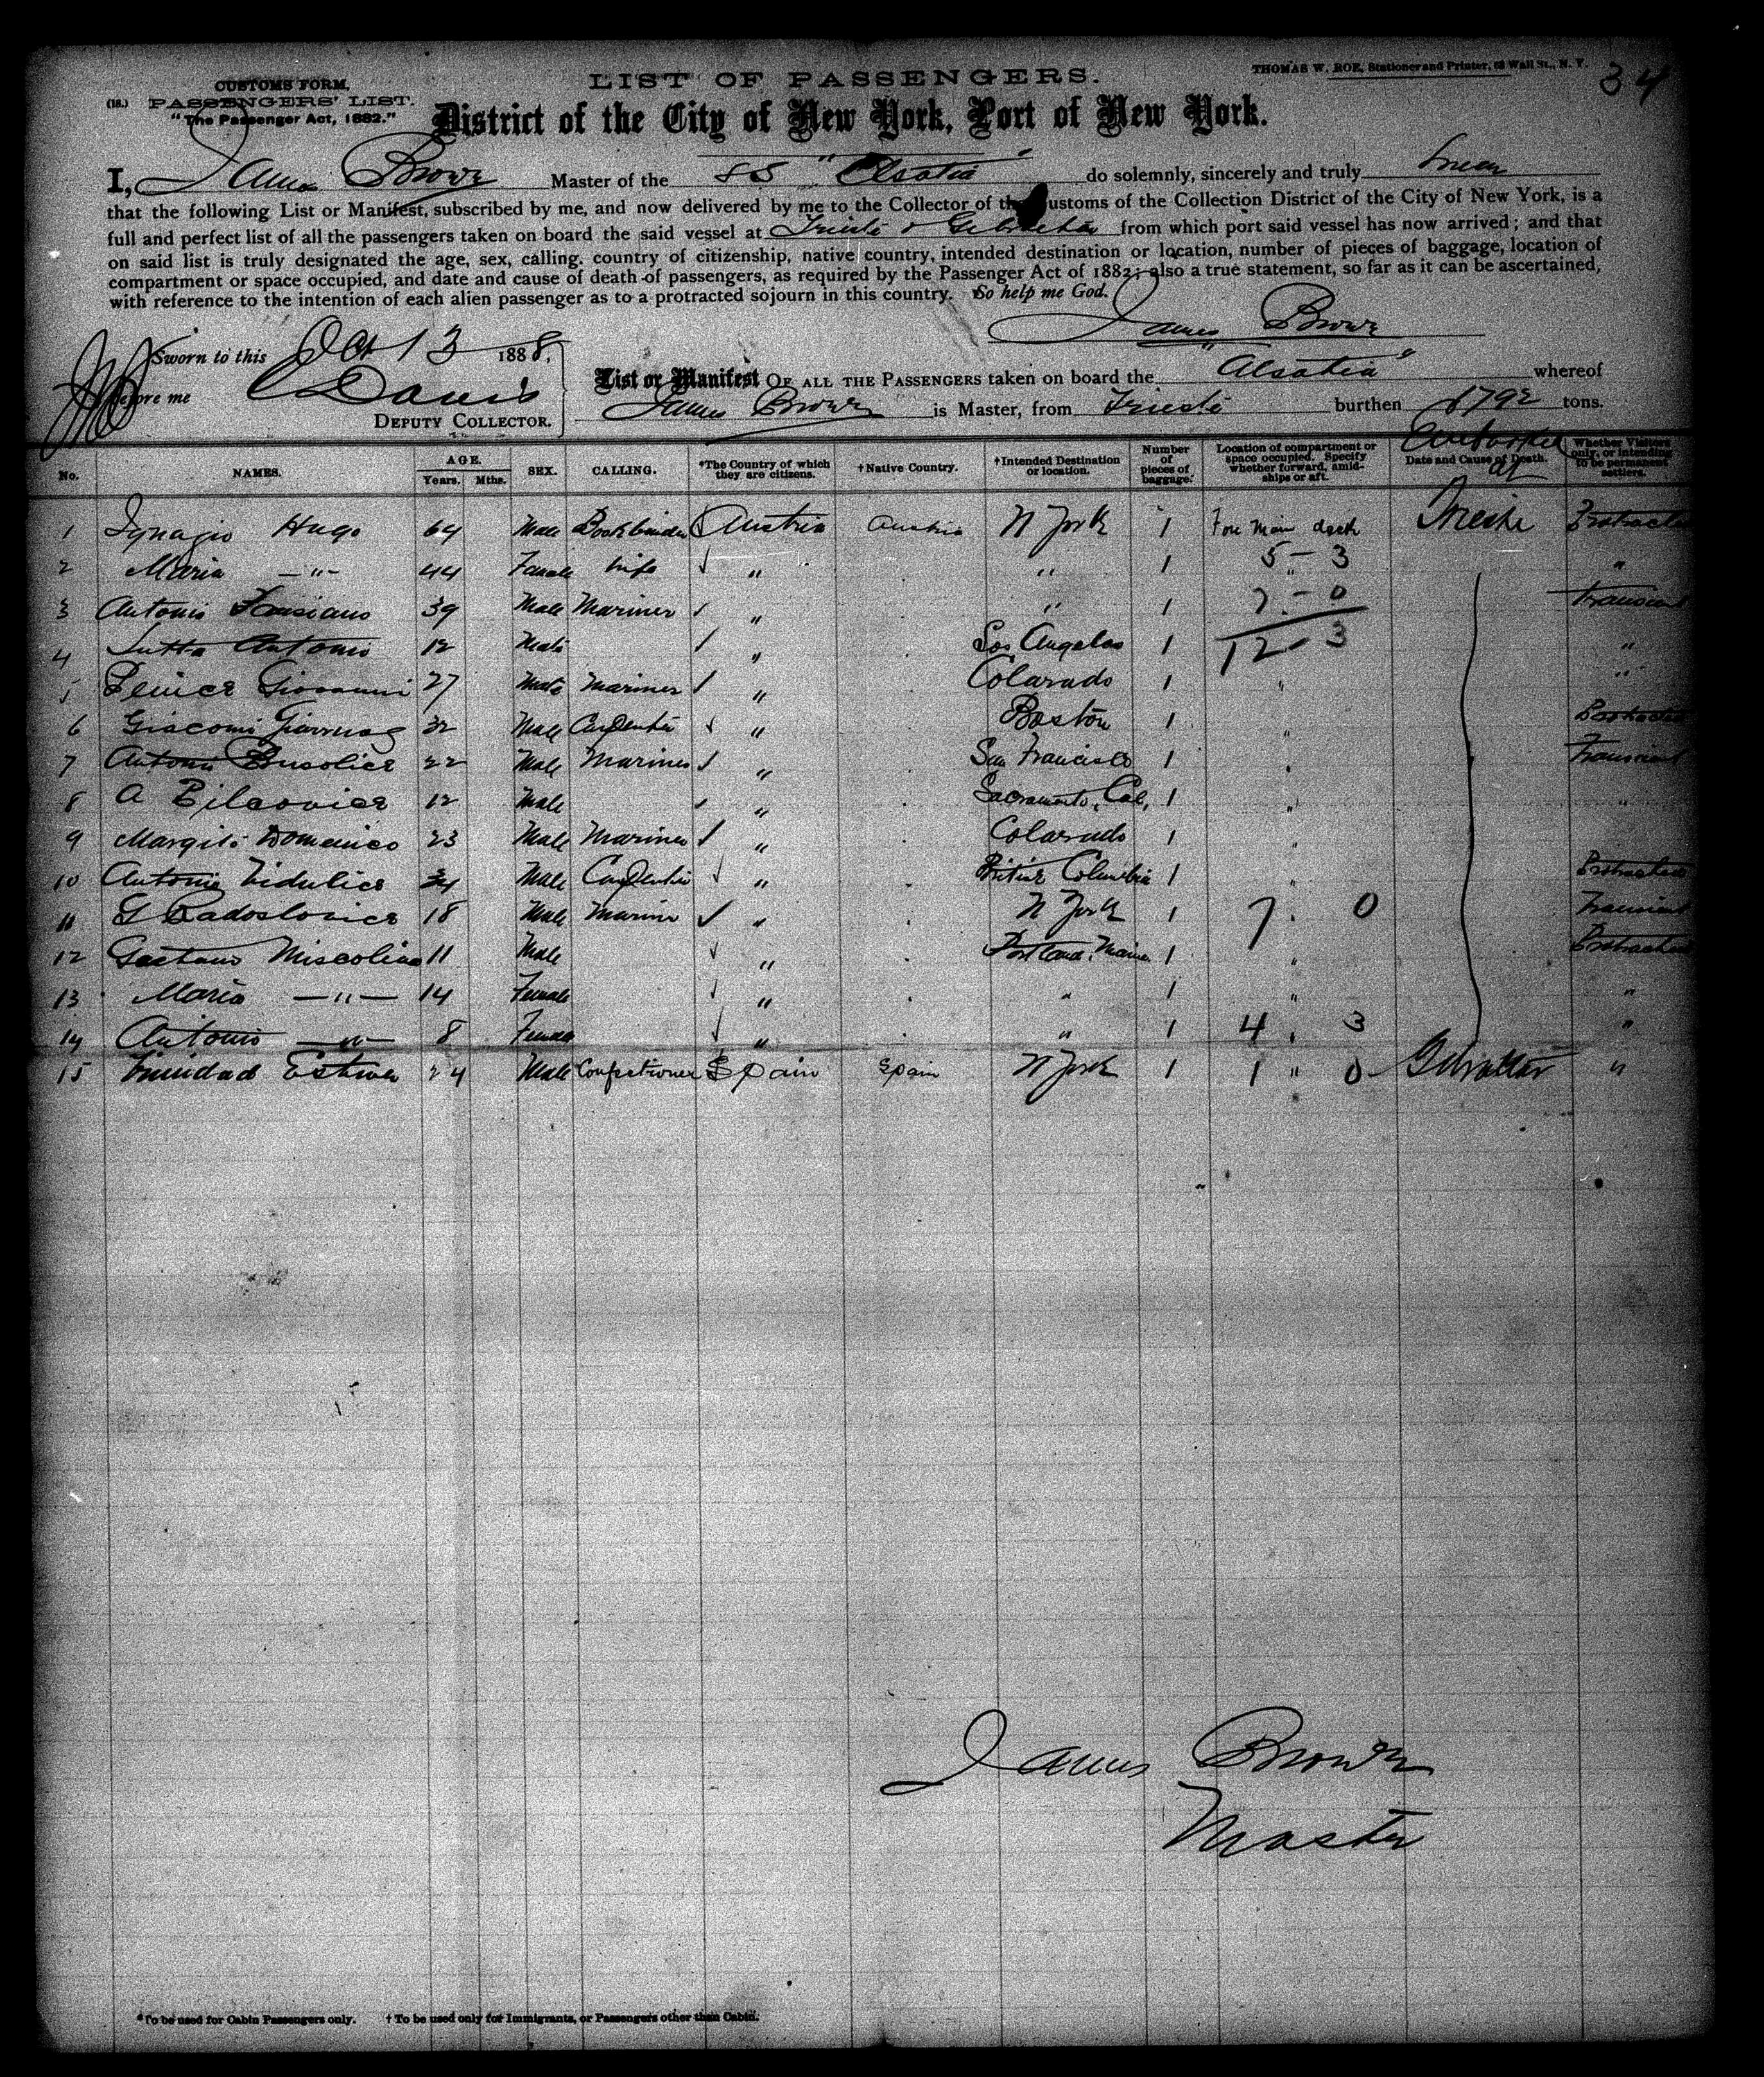 34
CUSTOMS FORM,
(18.) PASSENGERS' LIST.
"The Passenger Act, 1882."
LIST OF PASSENGERS.
THOMAS W. ROE, Stationer and Printer, 63 Wall St., N. Y.
District of the City of New York, Port of New York.
I, James Brown Master of the SS "Alsatia" do solemnly, sincerely and truly swear
that the following List or Manifest, subscribed by me, and now delivered by me to the Collector of the Customs of the Collection District of the City of New York, is a
full and perfect list of all the passengers taken on board the said vessel at Trieste & Gibraltar from which port said vessel has now arrived; and that
on said list is truly designated the age, sex, calling, country of citizenship, native country, intended destination or location, number of pieces of baggage, location of
compartment or space occupied, and date and cause of death of passengers, as required by the Passenger Act of 1882; also a true statement, so far as it can be ascertained,
with reference to the intention of each alien passenger as to a protracted sojourn in this country. So help me God.
James Brown
Sworn to this Oct 13 1888,
before me Davis
DEPUTY COLLECTOR.
List or Manifest OF ALL THE PASSENGERS taken on board the "Alsatia" whereof
James Brown is Master, from Trieste burthen 1792 tons.
No. NAMES. AGE. Years. Mths. SEX. CALLING. *The Country of which they are citizens. †Native Country. †Intended Destination or location. Number of pieces of baggage. Location of compartment or space occupied. Specify whether forward, amidships or aft. Date and Cause of Death. Embarked at Whether Visitors only, or intending to be permanent settlers.
1 Ignazio Hugo 64 Male Bookbinder Austria Austria N York 1 Fore Main deck Trieste Protracted
2 Maria —"— 44 Female Wife " " 1 5 - 3 "
3 Antonio 39 Male Mariner " " 1 7 - 0 Transient
4 Sutta Antonio 12 Male " Los Angelos 1 12 - 3 "
5 Giovanni 27 Male Mariner " Colarado 1 " "
6 Giacomi 32 Male Carpenter " Boston 1 " Protracted
7 Antonio Busolics 22 Male Mariner " San Francisco 1 " Transient
8 A Bilcovics 12 Male " Sacramento, Cal, 1 " "
9 Domenico 23 Male Mariner " Colarado 1 "
10 Antonio Vidulics 34 Male Carpenter " British Columbia 1 " Protracted
11 G Radoslovics 18 Male Mariner " N York 1 7 . 0 Transient
12 Gaetano Miscolina 11 Male " Portland, Maine 1 " Protracted
13 Maria —"— 14 Female " " 1 " "
14 Antonio —"— 8 Female " " 1 4 . 3 "
15 Trinidad 24 Male Confectioner Spain Spain N York 1 1 " 0 Gibraltar "
James Brown
Master
*To be used for Cabin Passengers only. †To be used only for Immigrants, or Passengers other than Cabin.